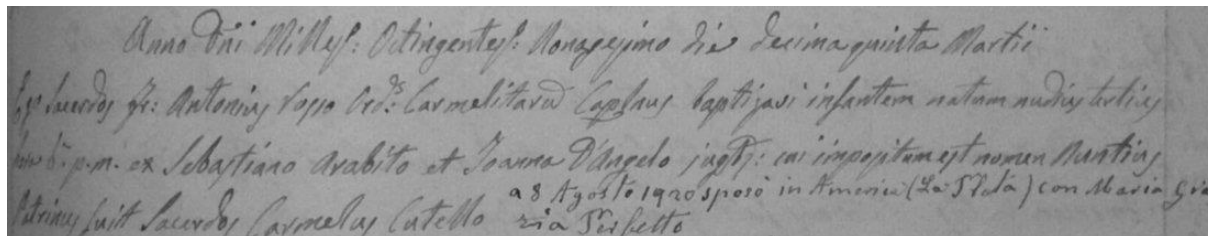 Anno Dñi Milles: Octingentes: Nonagesimo die decima quinta Martii
Ego Sacerdos fr: Antonius Ord:s Carmelitarũ Caplnus baptizavi infantem natum nudius tertius
hora 6. p.m. ex Sebastiano Arabito et Joanna D'Angelo jug: cui impositum est nomen Nuntius
Patrinus fuit Sacerdos Carmelus Cutello
a 8 Agosto 1920 sposò in America (La Plata) con Maria Gra
zia Perfetto